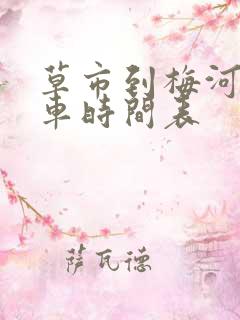 草市到梅河
車時間表
萨瓦德